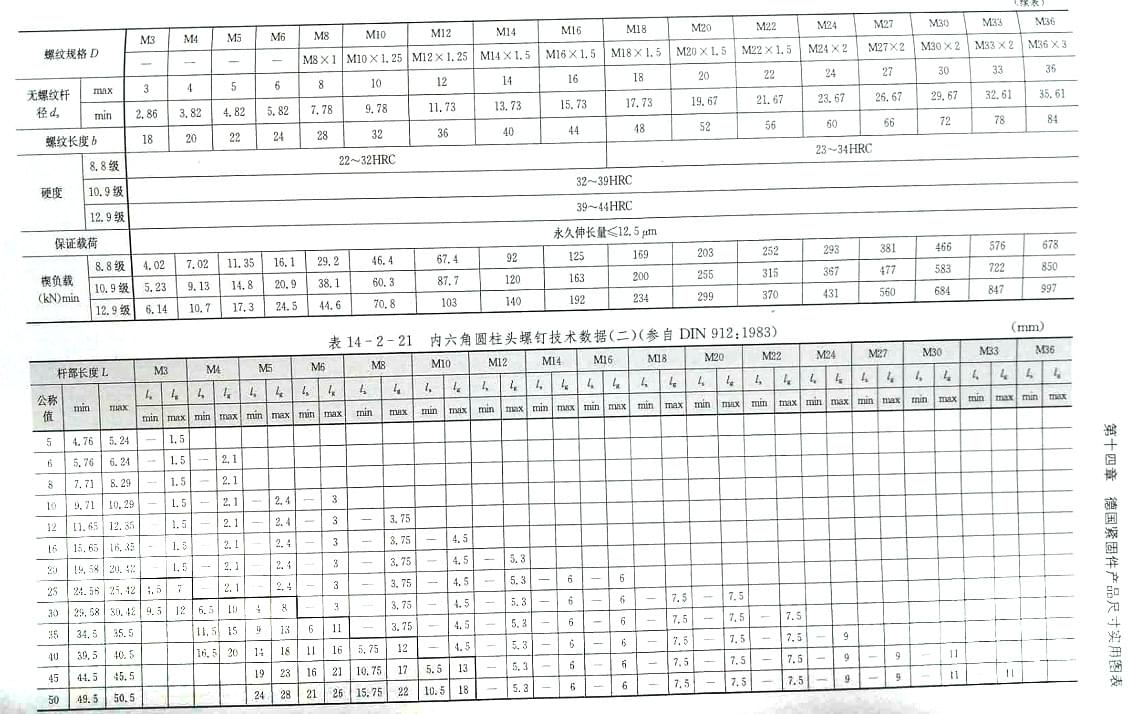 (续表)
螺纹规格 D M3 M4 M5 M6 M8 M10 M12 M14 M16 M18 M20 M22 M24 M27 M30 M33 M36
— — — — M8×1 M10×1.25 M12×1.25 M14×1.5 M16×1.5 M18×1.5 M20×1.5 M22×1.5 M24×2 M27×2 M30×2 M33×2 M36×3
无螺纹杆径 ds max 3 4 5 6 8 10 12 14 16 18 20 22 24 27 30 33 36
min 2.86 3.82 4.82 5.82 7.78 9.78 11.73 13.73 15.73 17.73 19.67 21.67 23.67 26.67 29.67 32.61 35.61
螺纹长度 b 18 20 22 24 28 32 36 40 44 48 52 56 60 66 72 78 84
硬度 8.8级 22~32HRC 23~34HRC
10.9级 32~39HRC
12.9级 39~44HRC
保证载荷 永久伸长量≤12.5 μm
楔负载(kN)min 8.8级 4.02 7.02 11.35 16.1 29.2 46.4 67.4 92 125 169 203 252 293 381 466 576 678
10.9级 5.23 9.13 14.8 20.9 38.1 60.3 87.7 120 163 200 255 315 367 477 583 722 850
12.9级 6.14 10.7 17.3 24.5 44.6 70.8 103 140 192 234 299 370 431 560 684 847 997
表 14-2-21 内六角圆柱头螺钉技术数据(二)(参自 DIN 912:1983) (mm)
杆部长度 L M3 M4 M5 M6 M8 M10 M12 M14 M16 M18 M20 M22 M24 M27 M30 M33 M36
公称值 min max ls lg ls lg ls lg ls lg ls lg ls lg ls lg ls lg ls lg ls lg ls lg ls lg ls lg ls lg ls lg ls lg ls lg
min max min max min max min max min max min max min max min max min max min max min max min max min max min max min max min max min max
5 4.76 5.24 — 1.5
6 5.76 6.24 — 1.5 — 2.1
8 7.71 8.29 — 1.5 — 2.1
10 9.71 10.29 — 1.5 — 2.1 — 2.4 — 3
12 11.65 12.35 — 1.5 — 2.1 — 2.4 — 3 — 3.75
16 15.65 16.35 — 1.5 — 2.1 — 2.4 — 3 — 3.75 — 4.5
20 19.58 20.42 — 1.5 — 2.1 — 2.4 — 3 — 3.75 — 4.5 — 5.3
25 24.58 25.42 4.5 7 — 2.1 — 2.4 — 3 — 3.75 — 4.5 — 5.3 — 6 — 6
30 29.58 30.42 9.5 12 6.5 10 4 8 — 3 — 3.75 — 4.5 — 5.3 — 6 — 6 — 7.5 — 7.5
35 34.5 35.5 11.5 15 9 13 6 11 — 3.75 — 4.5 — 5.3 — 6 — 6 — 7.5 — 7.5 — 7.5
40 39.5 40.5 16.5 20 14 18 11 16 5.75 12 — 4.5 — 5.3 — 6 — 6 — 7.5 — 7.5 — 7.5 — 9
45 44.5 45.5 19 23 16 21 10.75 17 5.5 13 — 5.3 — 6 — 6 — 7.5 — 7.5 — 7.5 — 9 — 9 — 11
50 49.5 50.5 24 28 21 26 15.75 22 10.5 18 — 5.3 — 6 — 6 — 7.5 — 7.5 — 7.5 — 9 — 9 — 11 — 11
第十四章 德国紧固件产品尺寸实用图表